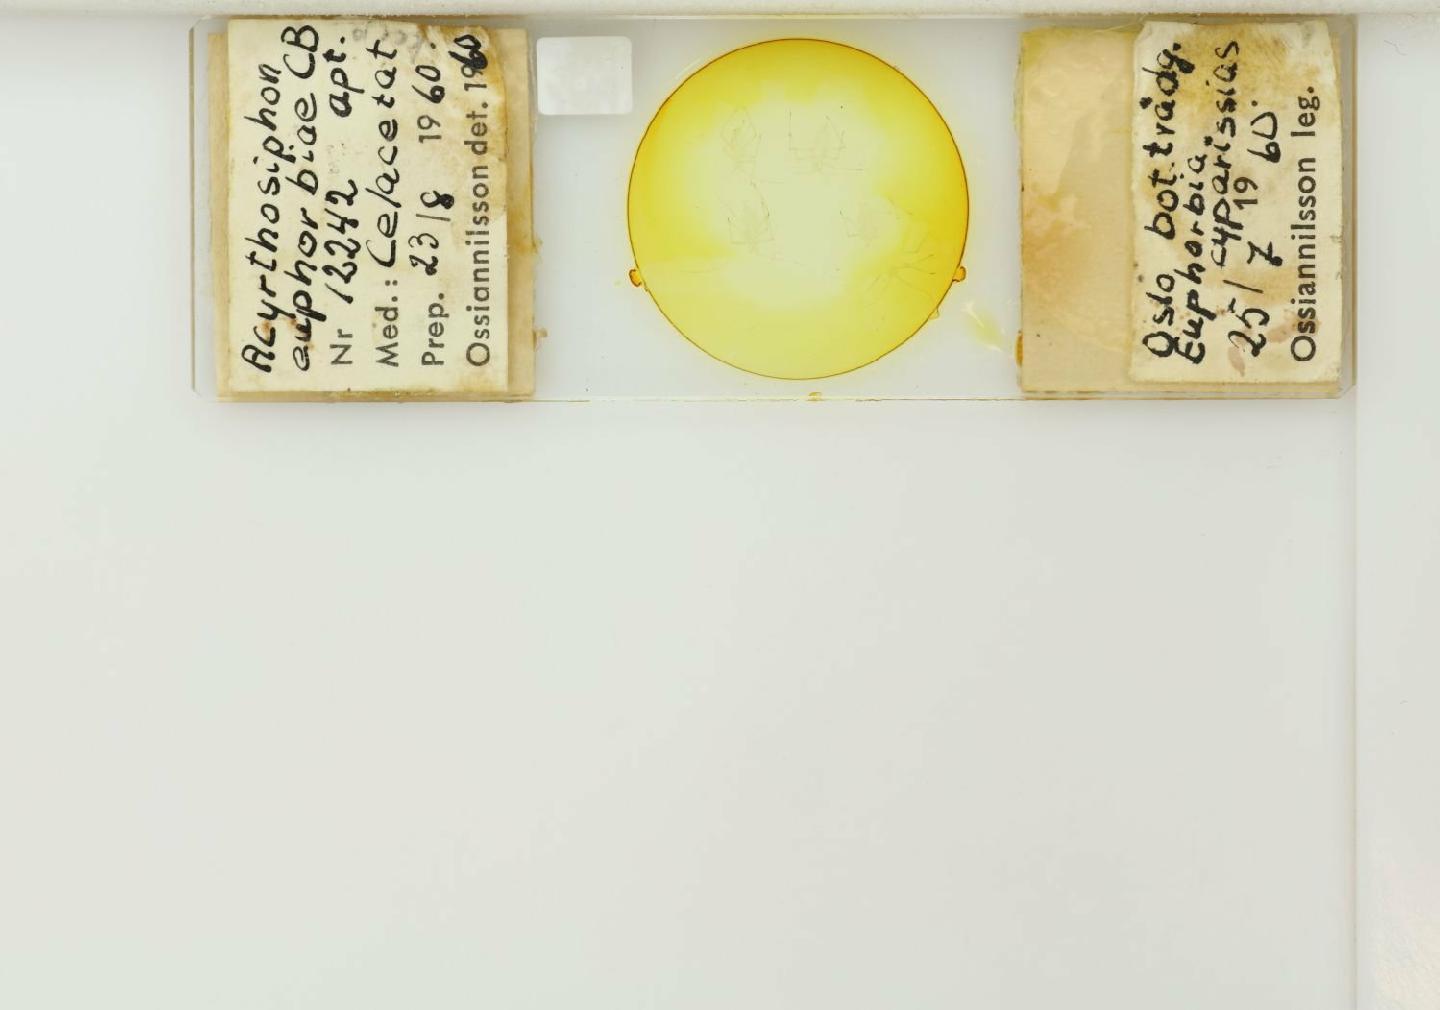 Acyrthosiphon
euphorbiae CB
Nr 12242 apt.
Med.: Celacetat
Prep. 23/8 1960.
Ossiannilsson det. 1960
Oslo bot. trädg.
Euphorbia
cyparissias
25/7 1960.
Ossiannilsson leg.